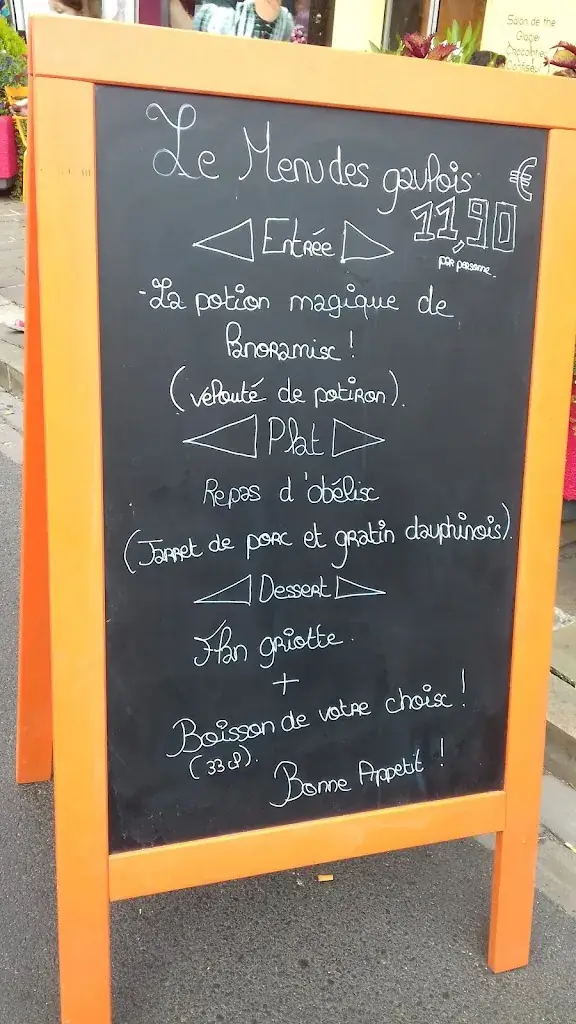 Salon de the
Glacier
Le Menu des gaulois €
11,90
par personne.
Entrée
- La potion magique de
Panoramisc !
(velouté de potiron).
Plat
Repas d'obélisc
(Jarret de porc et gratin dauphinois).
Dessert
Flan griotte.
+
Boisson de votre choisc !
(33cl).
Bonne Appetit !